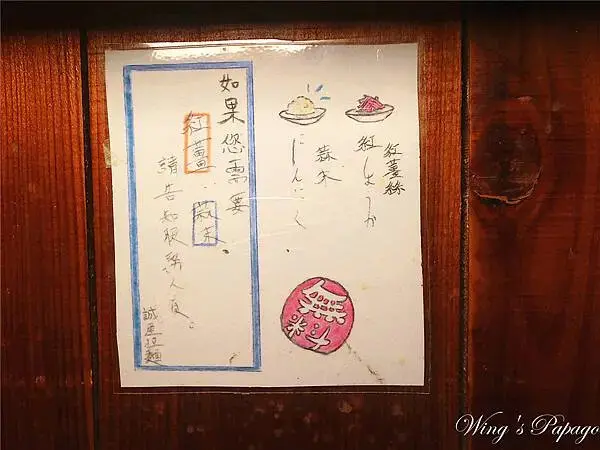 紅薑絲
紅しょうが
蒜末
にんにく
如果您需要
紅薑、蒜末。
請告知服務人員。
誠屋拉麵
無料
Wing's Papago